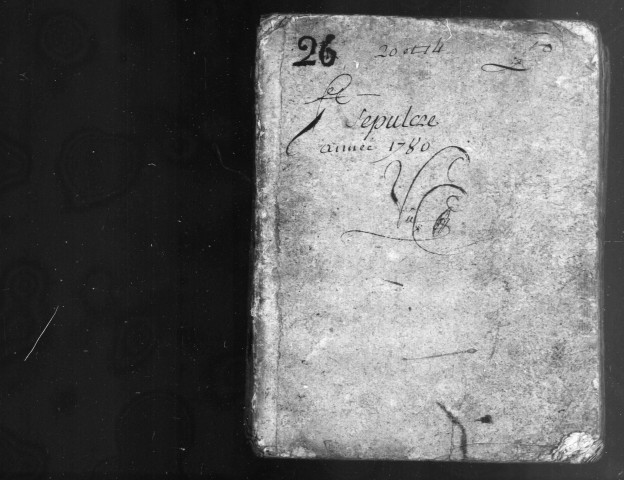 26 20 et 14
St
Sepulcre
année 1780